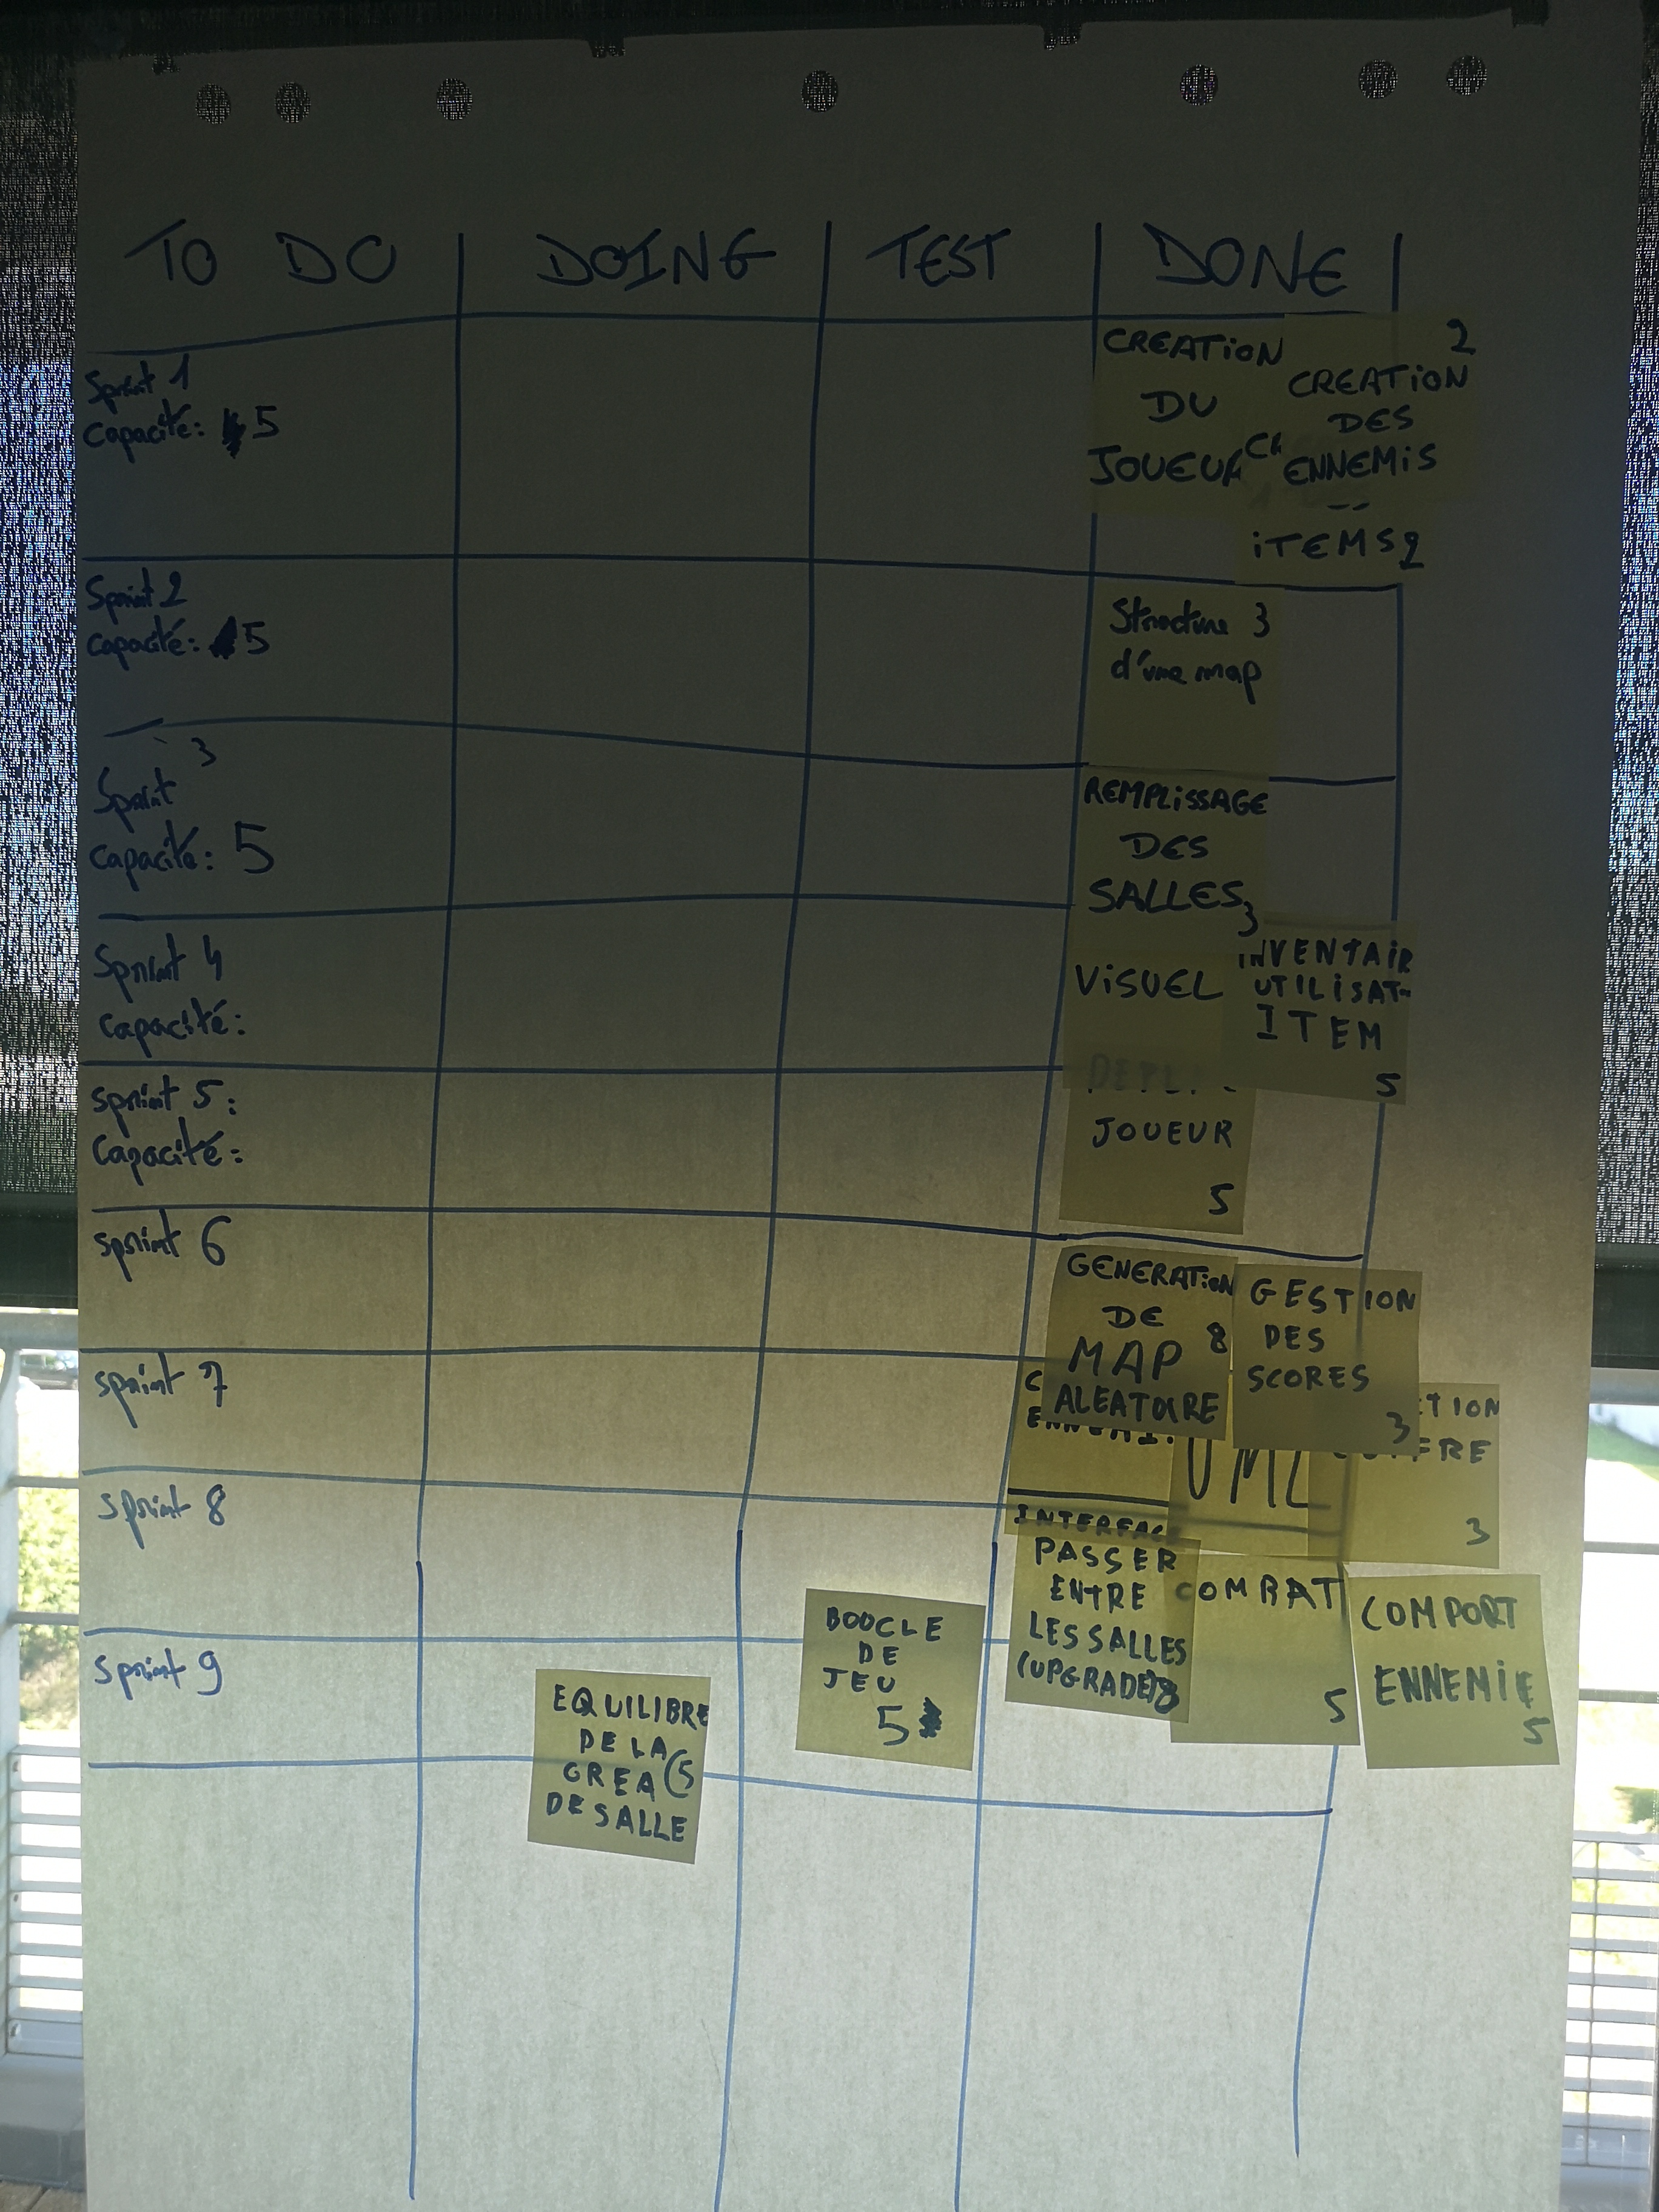 TO DO DOING TEST DONE
Sprint 1
Capacité: 5
CREATION
DU
JOUEUR
2
CREATION
DES
ENNEMIS
ITEMS 2
Sprint 2
Capacité: 5
Structure 3
d'une map
Sprint 3
Capacité: 5
REMPLISSAGE
DES
SALLES
3
Sprint 4
Capacité:
VISUEL
INVENTAIR
UTILISAT-
ITEM
5
Sprint 5:
Capacité:
JOUEUR
5
Sprint 6
GENERATION
DE
MAP 8
ALEATOIRE
GESTION
DES
SCORES
3
Sprint 7
UML
3
Sprint 8
INTERFACE
PASSER
ENTRE
LES SALLES
(UPGRADE) 8
COMBAT
5
COMPORT
ENNEMIE
5
Sprint 9
BOUCLE
DE
JEU
5
EQUILIBRE
DE LA
CREA (5
DE SALLE